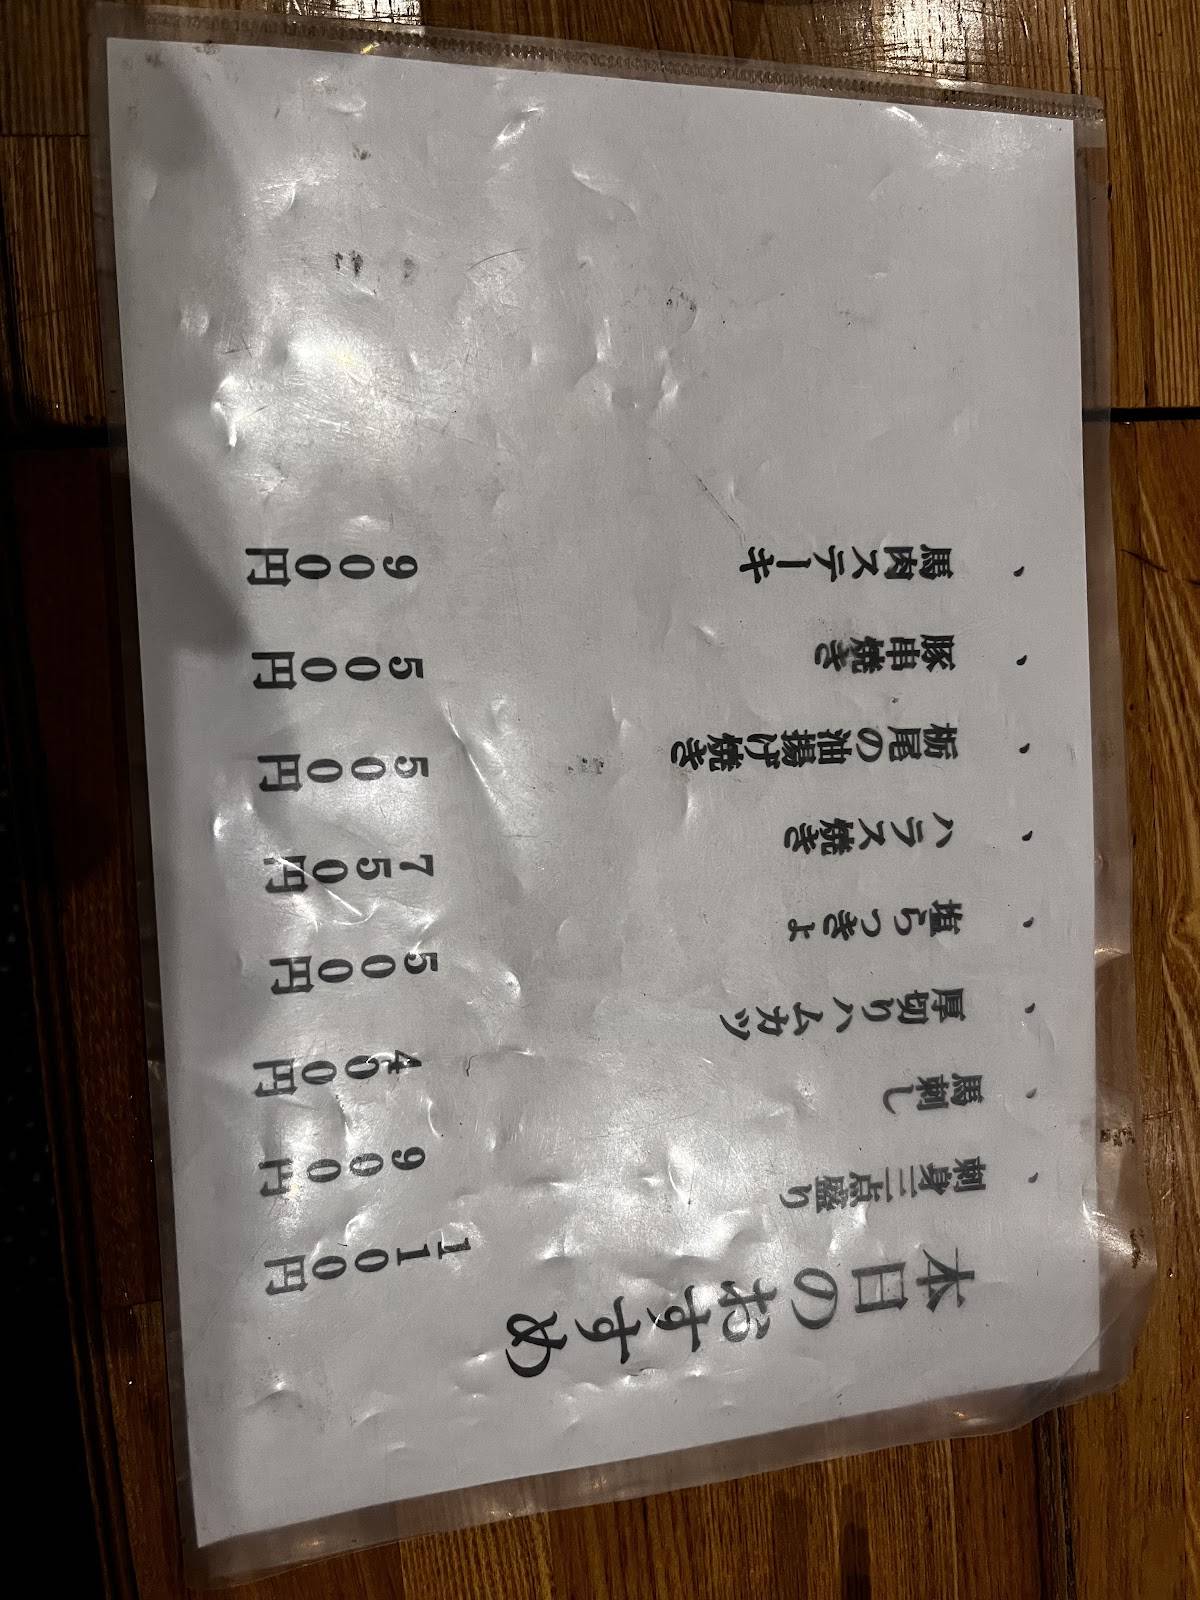 本日のおすすめ
、刺身三点盛り 1100円
、馬刺し 900円
、厚切りハムカツ 400円
、塩らっきょ 500円
、ハラス焼き 750円
、栃尾の油揚げ焼き 500円
、豚串焼き 500円
、馬肉ステーキ 900円